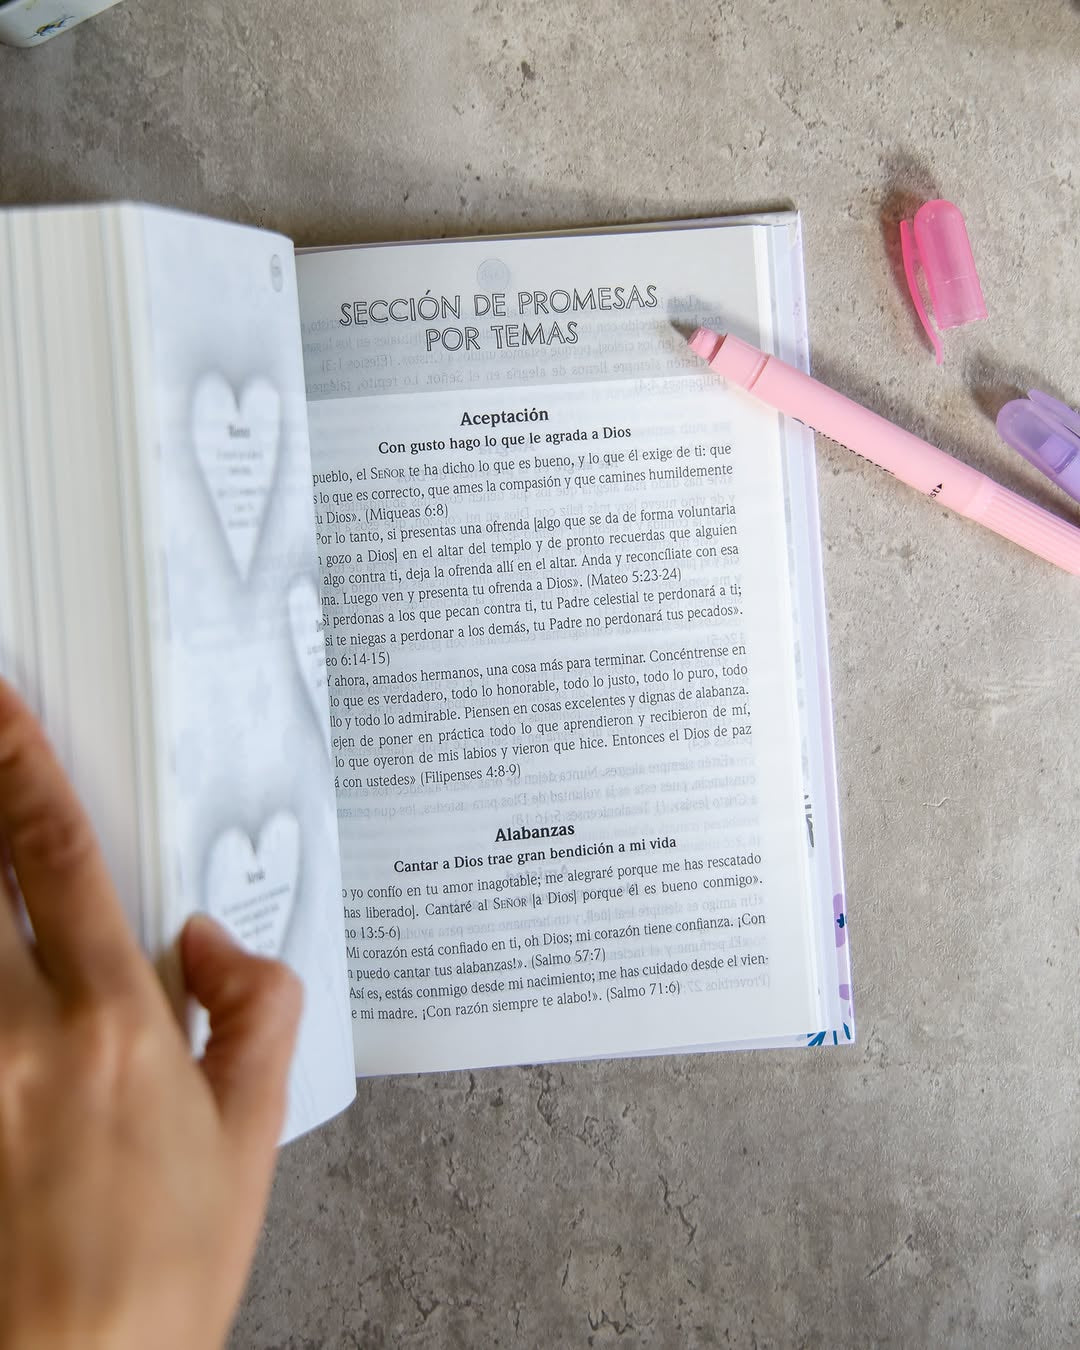 SECCIÓN DE PROMESAS
POR TEMAS
Aceptación
Con gusto hago lo que le agrada a Dios
pueblo, el SEÑOR te ha dicho lo que es bueno, y lo que él exige de ti: que
s lo que es correcto, que ames la compasión y que camines humildemente
u Dios». (Miqueas 6:8)
Por lo tanto, si presentas una ofrenda [algo que se da de forma voluntaria
gozo a Dios] en el altar del templo y de pronto recuerdas que alguien
algo contra ti, deja la ofrenda allí en el altar. Anda y reconcíliate con esa
na. Luego ven y presenta tu ofrenda a Dios». (Mateo 5:23-24)
Si perdonas a los que pecan contra ti, tu Padre celestial te perdonará a ti;
si te niegas a perdonar a los demás, tu Padre no perdonará tus pecados».
eo 6:14-15)
Y ahora, amados hermanos, una cosa más para terminar. Concéntrense en
lo que es verdadero, todo lo honorable, todo lo justo, todo lo puro, todo
llo y todo lo admirable. Piensen en cosas excelentes y dignas de alabanza.
ejen de poner en práctica todo lo que aprendieron y recibieron de mí,
lo que oyeron de mis labios y vieron que hice. Entonces el Dios de paz
á con ustedes» (Filipenses 4:8-9)
Alabanzas
Cantar a Dios trae gran bendición a mi vida
o yo confío en tu amor inagotable; me alegraré porque me has rescatado
has liberado]. Cantaré al SEÑOR [a Dios] porque él es bueno conmigo».
no 13:5-6)
Mi corazón está confiado en ti, oh Dios; mi corazón tiene confianza. ¡Con
n puedo cantar tus alabanzas!». (Salmo 57:7)
Así es, estás conmigo desde mi nacimiento; me has cuidado desde el vien-
e mi madre. ¡Con razón siempre te alabo!». (Salmo 71:6)